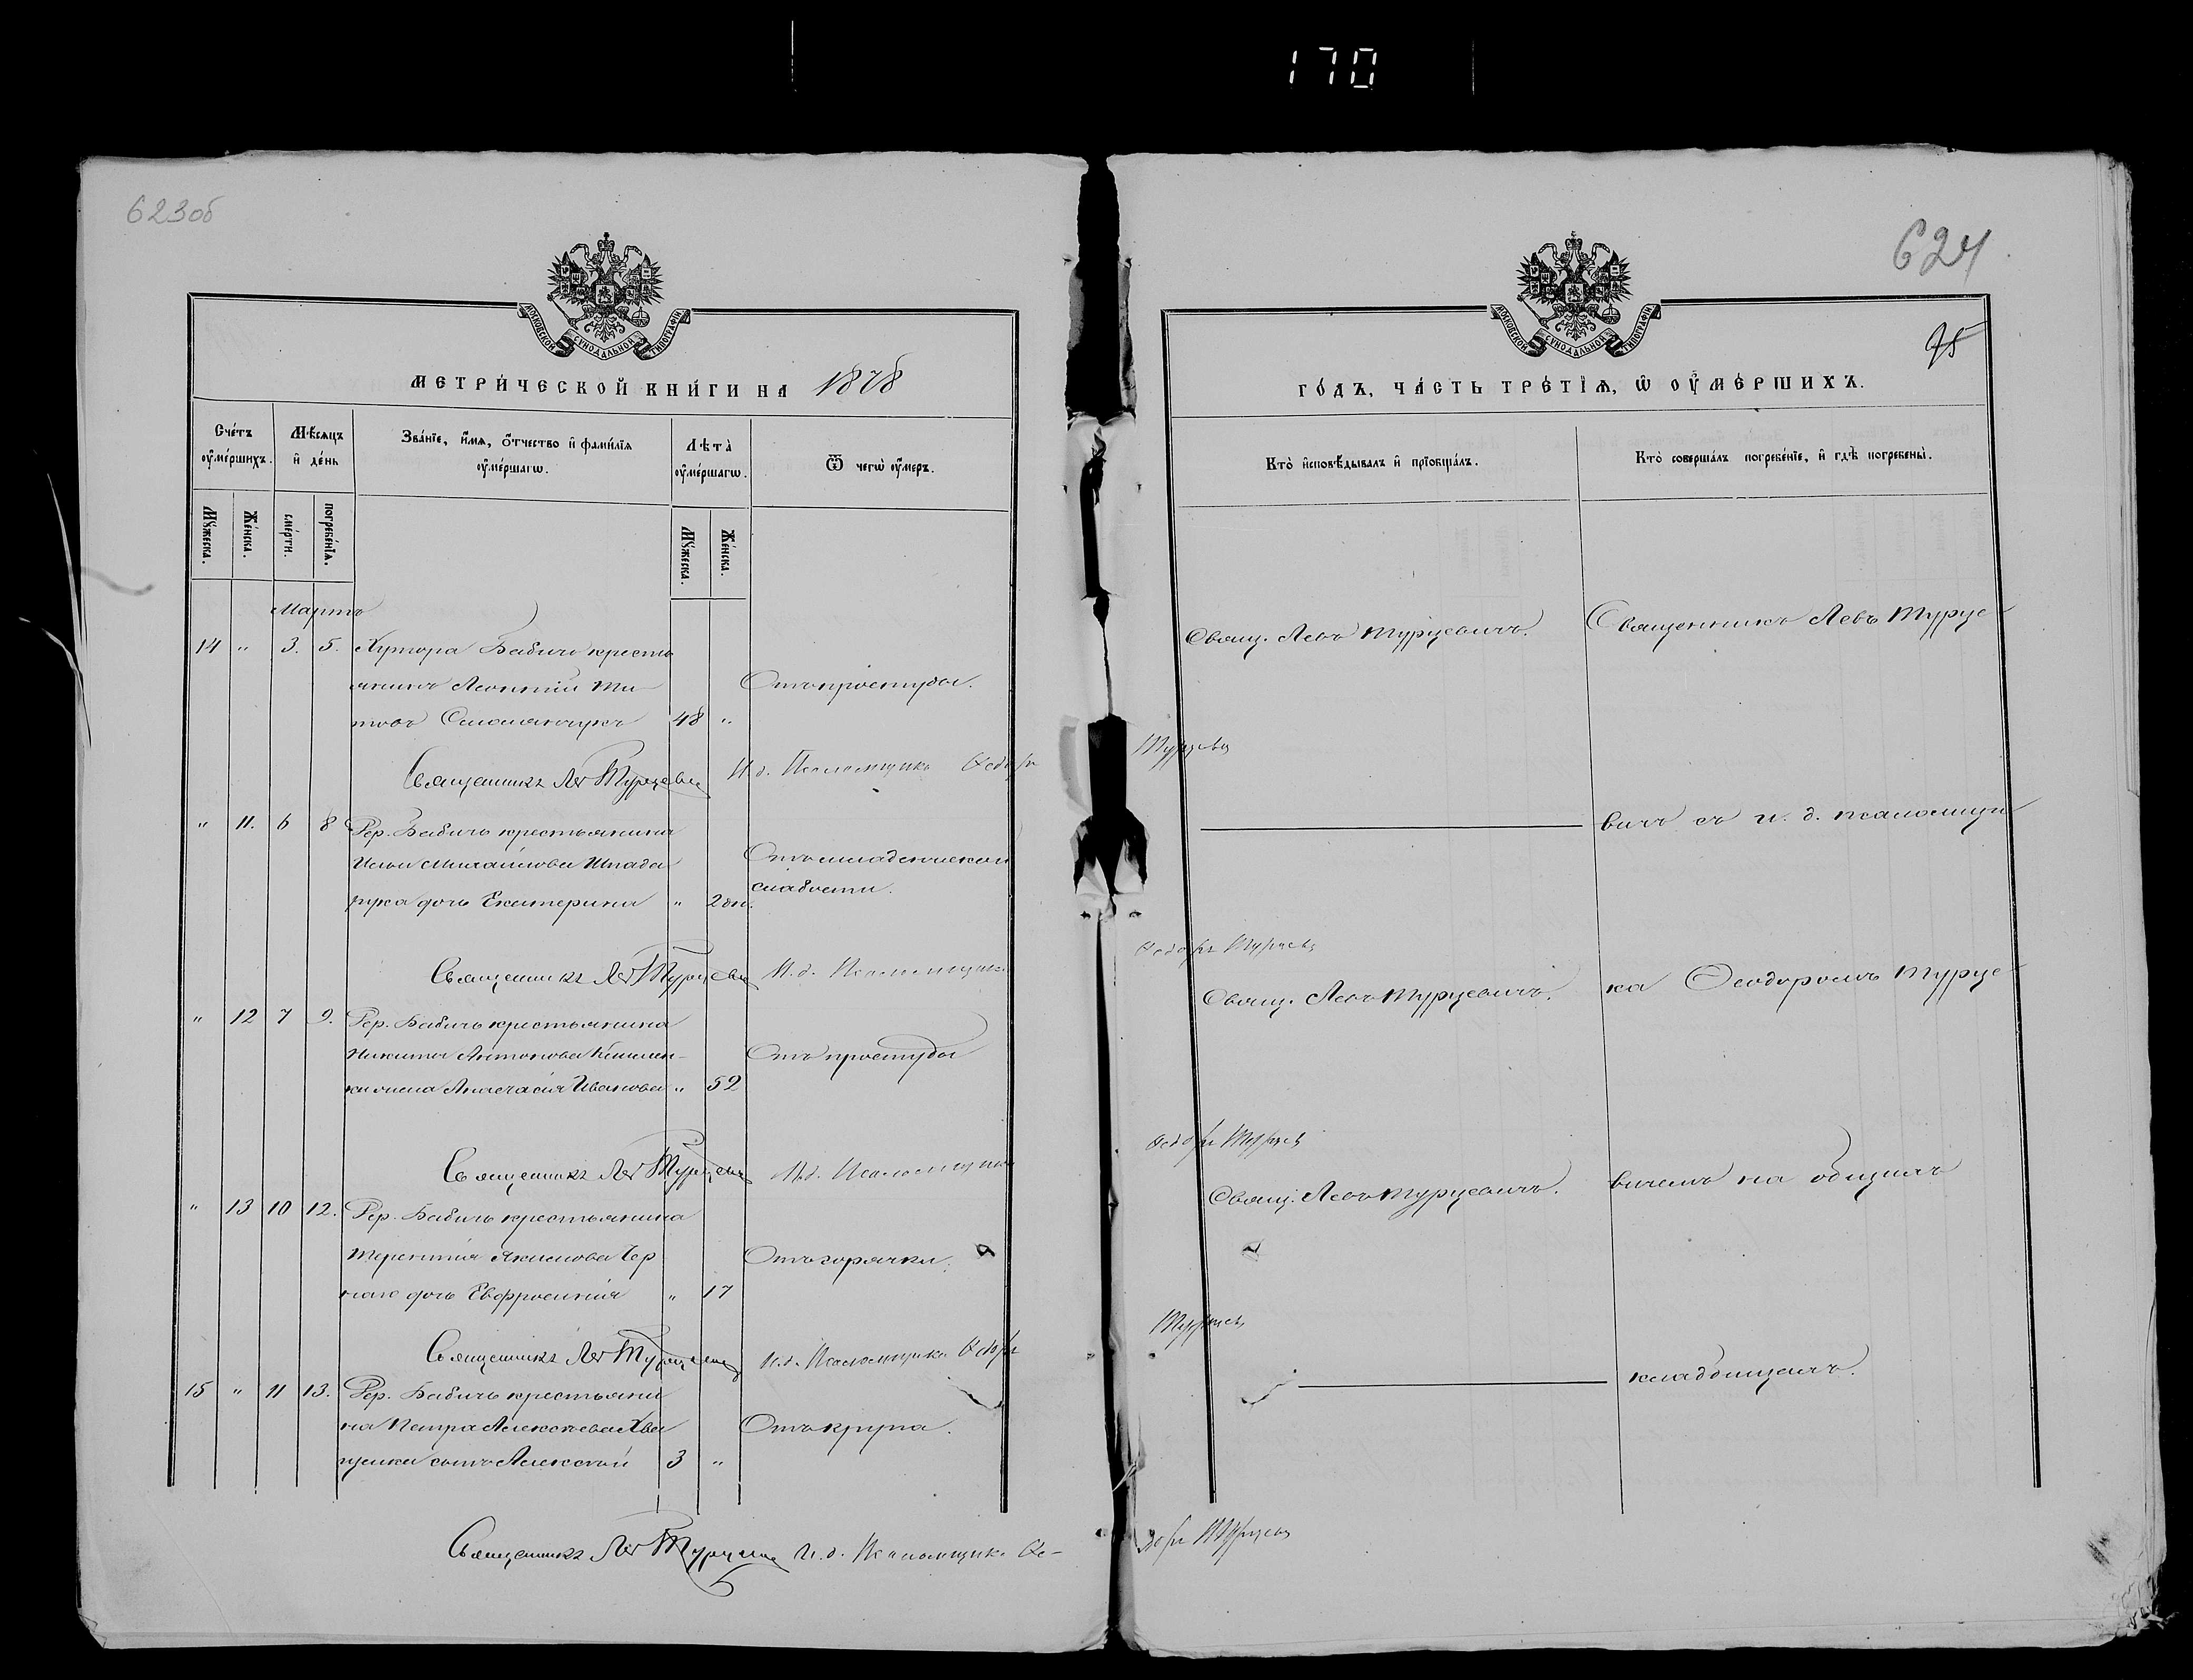 170
623об
МОСКОВСКОЙ СУНОДАЛЬНОЙ ТИПОГРАФІИ
МЕТРИ́ЧЕСКОЙ КНИ́ГИ НА 1878
Сче́тъ оу҆ме́ршихъ.
Мѣ́сяцъ и҆ де́нь
Зва́нїе, и҆́мѧ, ѻ҆́тчество и҆ фами́лїѧ оу҆ме́ршагѡ.
Лѣта̀ оу҆ме́ршагѡ.
Ѿ чегѡ̀ оу҆́меръ.
Мꙋ́жеска.
Же́нска.
сме́рти.
погребе́нїѧ.
Мꙋ́жеска.
Же́нска.
Мартъ
14 " 3. 5. Хутора Бабичъ кресть
янинъ Леонтій Ти
товъ Смолянчукъ 48 "
Отъ простуды.
Священникъ Лев Турцевич И. д. Псаломщика Ѳедоръ
" 11. 6 8 Дер. Бабичъ крестьянина
Ильи Михайлова Шпада
рука дочь Екатерина " 2 дн.
Отъ младенческой
слабости.
Священникъ Лев Турцевич И. д. Псаломщика
" 12 7 9. Дер. Бабичъ крестьянина
Никиты Антонова
жена Анастасія Иванова " 52
Отъ простуды
Священникъ Лев Турцевич И. д. Псаломщика
" 13 10 12. Дер. Бабичъ крестьянина
Терентія Якимова Чер
дочь Евфросинія " 17
Отъ горячки.
Священникъ Лев Турцевич И. д. Псаломщика Ѳедоръ
15 " 11 13. Дер. Бабичъ крестьяни
на Петра Алексѣева Хва
щенка сынъ Алексѣй 3 "
Отъ крупа.
Священникъ Лев Турцевич И. д. Псаломщика Ѳе-
624
95
МОСКОВСКОЙ СУНОДАЛЬНОЙ ТИПОГРАФІИ
ГО́ДЪ, ЧА́СТЬ ТРЕ́ТЇѦ, Ѡ҆ ОУ҆МЕ́РШИХЪ.
Кто̀ и҆сповѣ́дывалъ и҆ прїобща́лъ.
Кто̀ соверша́лъ погребе́нїе, и҆ гдѣ̀ погребены̀.
Свящ. Левъ Турцевичъ.
Священникъ Левъ Турце
Турцевич
вичъ съ и. д. псаломщи
Ѳедоръ Турцевич
Свящ. Левъ Турцевичъ.
ка Ѳеодоромъ Турце
Ѳедоръ Турцевич
Свящ. Левъ Турцевичъ.
вичемъ на общемъ
Турцевич
кладбищемъ.
доръ Турцевич